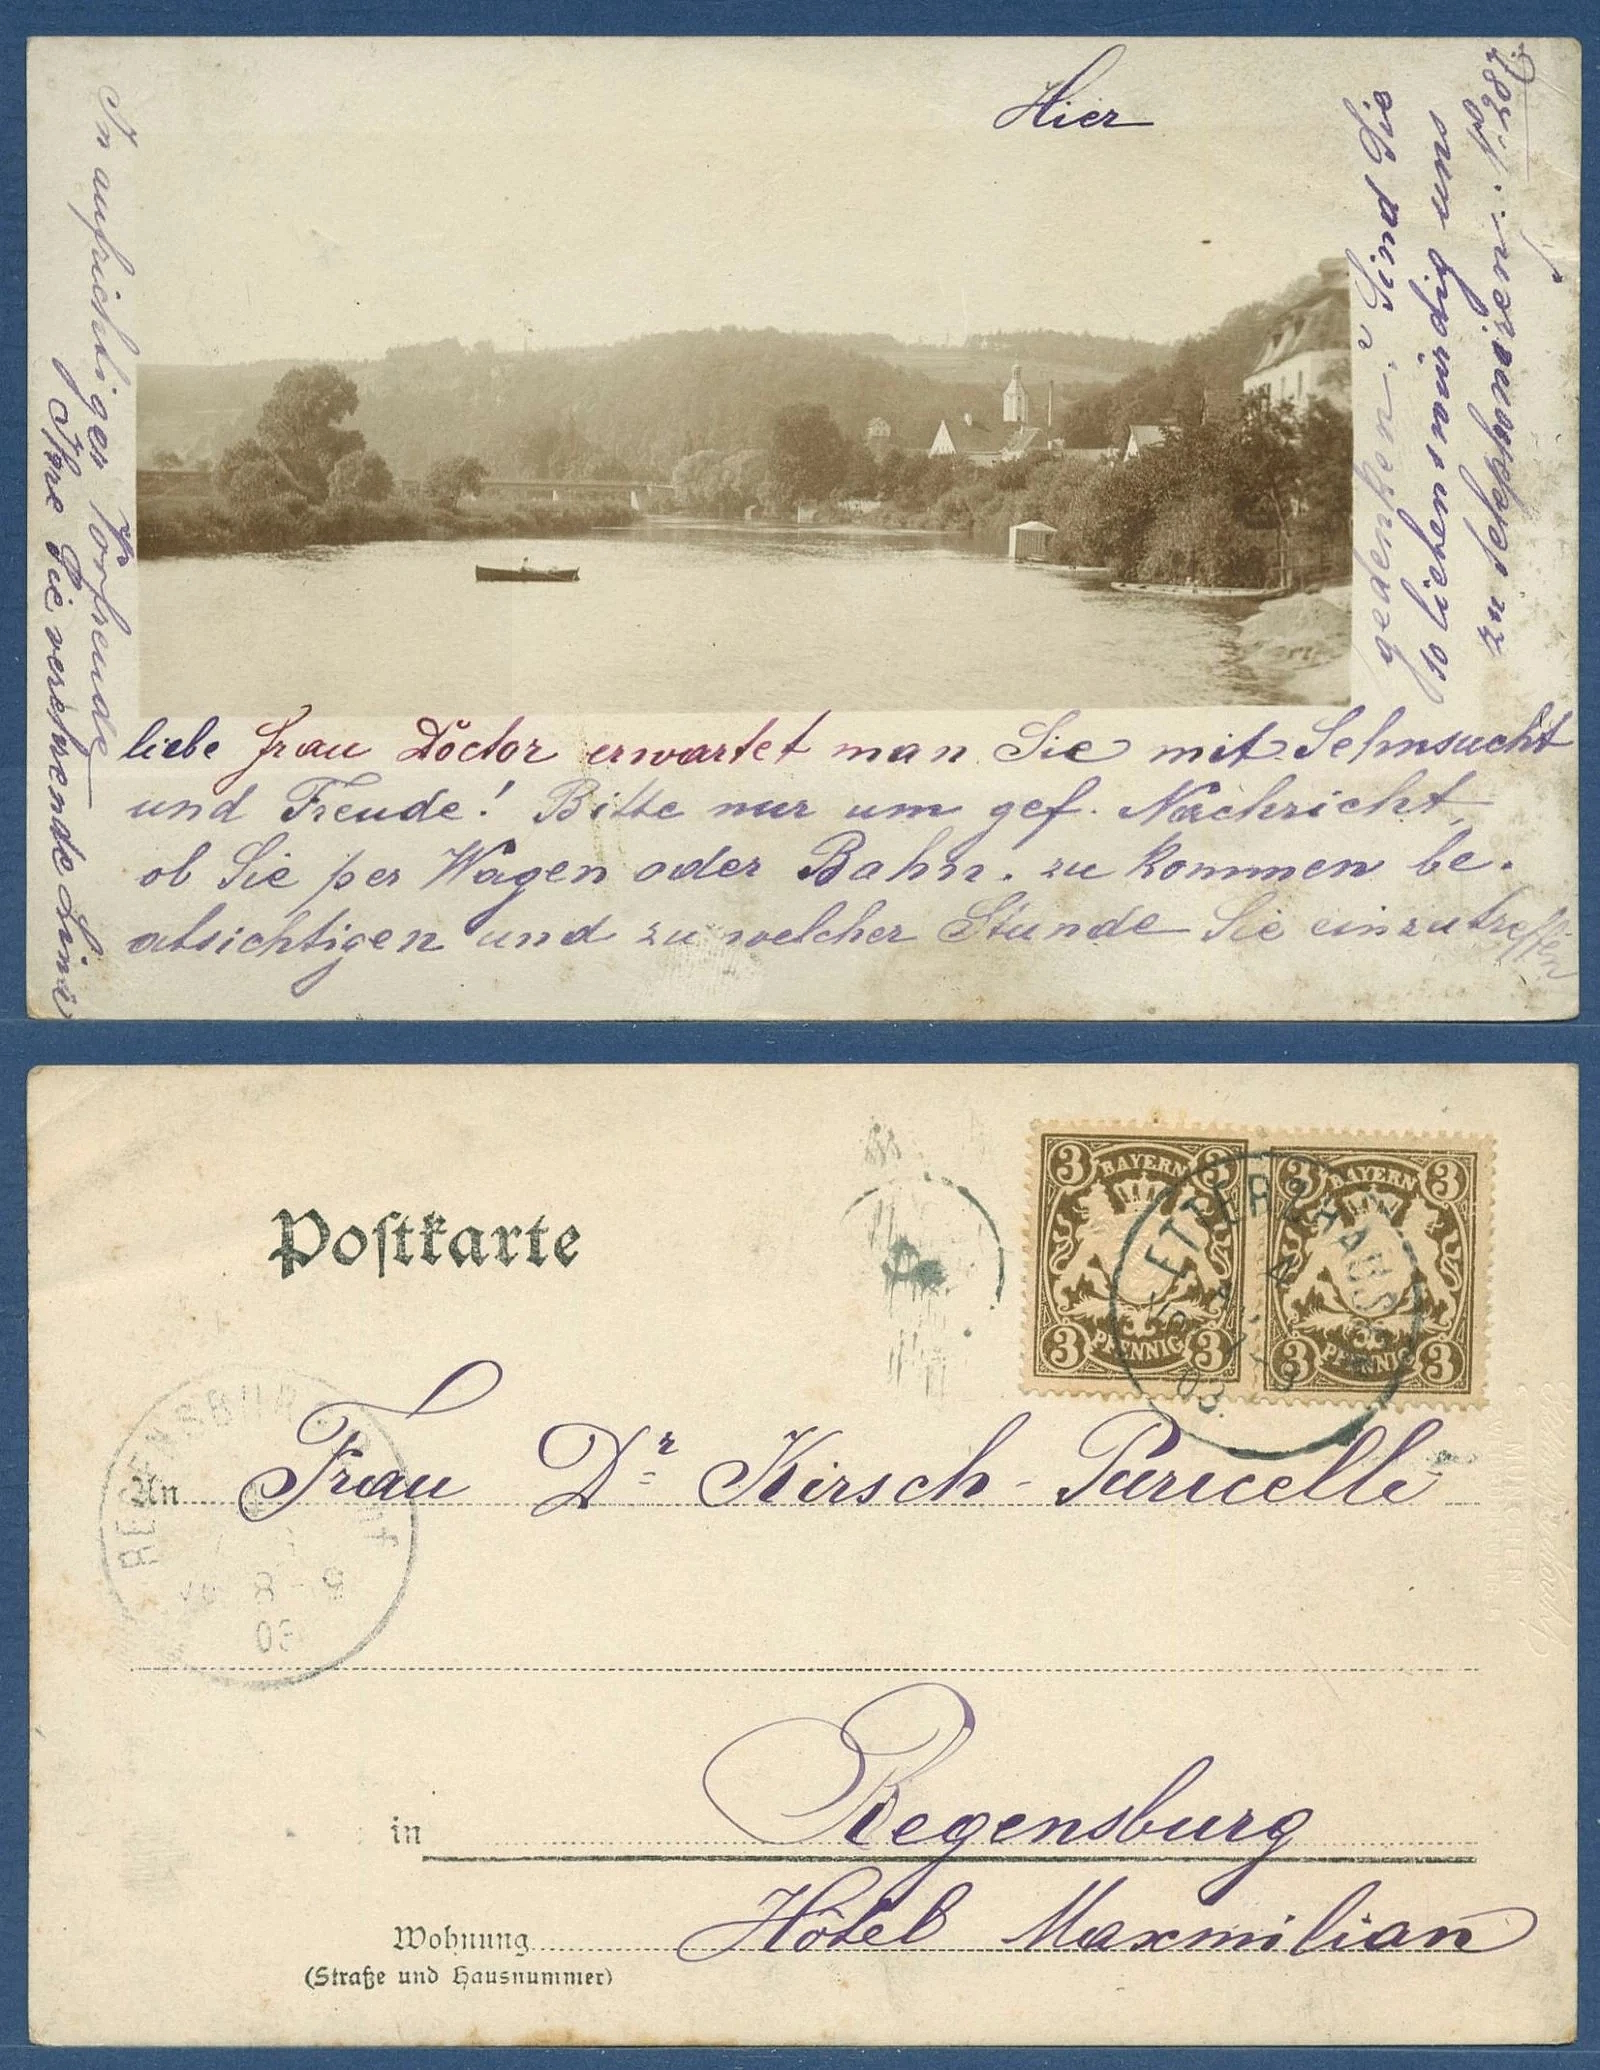 Hier
liebe Frau Doctor erwartet man Sie mit Sehnsucht
und Freude! Bitte nur um gef. Nachricht,
ob Sie per Wagen oder Bahn. zu kommen be-
absichtigen und zu welcher Stunde Sie einzutreffen
gedenken? Sind Sie
so liebenswürdig uns
zu telephoniren: No 287.
In aufrichtiger Vorfreude
Ihre Sie verehrende
Postkarte
BAYERN
3 3
3 3
PFENNIG
BAYERN
3 3
3 3
PFENNIG
ETTERZHAUS
03
REGENSBUR
8-9
03
An Frau Dr Kirsch-Puricelli
in Regensburg
Wohnung Hôtel Maxmilian
(Straße und Hausnummer)